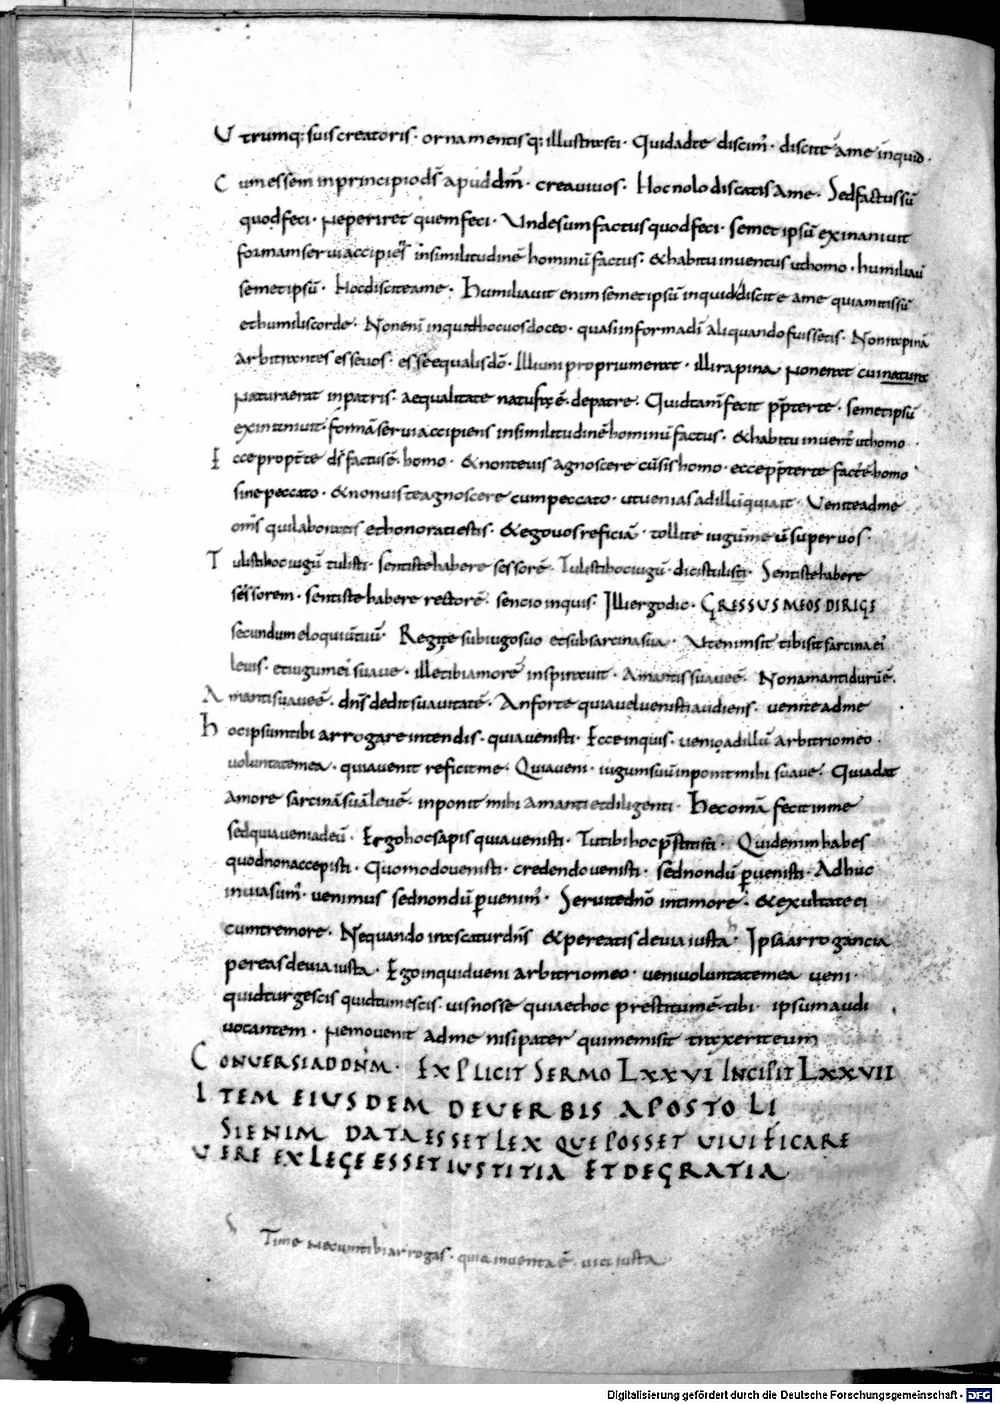 Utrumq; suis creatoris · ornamentis q; illustrasti · Quid ad te discim̄ · discite a me inquid ·
Cum essem in principio dš apud dm̄ · creavi vos · Hoc nolo discatis a me · Sed factus sū
quod feci · Ne periret quem feci · Unde sum factus quod feci · semet ipsū exinanivit
formam servi accipiēs in similitudinē hominū factus · & habitu inventus ut homo · humiliav̄
semet ipsū · Hoc discite a me · Humiliavit enim semet ipsū inquid discite a me quia mitis sū
et humilis corde · Non enī inquid hoc vos doceo · quasi in forma dī aliquando fuissetis · Non rapinā
arbitrantes esse vos · esse equalis dō · Illum proprium erat · illi rapina non erat cui natura
Natura erat in patris · aequalitate natus ē · de patre · Quid tam̄ fecit p̄pter te · semet ipsū
exinanivit · formā servi accipiens in similitudinē hominū factus · & habitu invent' ut homo
Ecce propt̄ te dš factus ē · homo · & non te vis agnoscere cū sis homo · ecce p̄pter te fact' ē · homo
sine peccato · & non vis te agnoscere cum peccato · ut venias ad illū qui ait · Venite ad me
om̄s qui laboratis et honorati estis · & ego vos reficiā · tollite iugū meū super vos ·
Tulisti hoc iugū tulisti · sentis te habere sessorē · Tulisti hoc iugū · dicis tulisti · Sentis te habere
sessorem · sentis te habere rectorē · sencio inquis · Illi ergo dic · GRESSUS MEOS DIRIGE
secundum eloquiū tuū · Regite sub iugo suo et sub sarcina sua · Ut enim sit tibi sit sarcina ei'
levis · et iugum ei' suave · ille tibi amorē inspiravit · Amanti suave ē · Non amanti durū ē ·
Amanti suave ē · dn̄s dedit suavitatē · An forte quia vel venisti audiens · venite ad me
Hoc ipsum tibi arrogare intendis · quia venisti · Ecce inquis · venio ad illū arbitrio meo ·
voluntate mea · quia venit reficit me · Quia veni · iugum suū inponit mihi suave · Quia dat
amore sarcinā suā levē · inponit mihi amanti et diligenti · Hec omā fecit in me
sed quia veni ad eū · Ergo hoc sapis quia venisti · Tu tibi hoc p̄stitisti · Quid enim habes
quod non accepisti · Quomodo venisti · credendo venisti · sed nondū p̄venisti · Adhuc
in via sum' · venimus sed nondū p̄venim' · Servite dn̄o in timore · & exultate ei
cum tremore · Nequando irascatur dn̄s & pereatis de via iusta · Ipsa arrogancia
pereas de via iusta · Ego inquid veni arbitrio meo · veni voluntate mea veni ·
quid turgescis quid tumescis · vis nosse quia et hoc prestitum ē tibi · ipsum audi
vocantem · Nemo venit ad me nisi pater qui me misit traxerit eum
CONVERSI AD DNM · EXPLICIT SERMO LXXVI INCIPIT LXXVII
ITEM EIUSDEM DE VERBIS APOSTOLI
SI ENIM DATA ESSET LEX QUE POSSET VIVIFICARE
VERE EX LEGE ESSET IUSTITIA ET DE GRATIA
Time ne cum tibi arrogas · quia inventa ē · via iusta
Digitalisierung gefördert durch die Deutsche Forschungsgemeinschaft · DFG